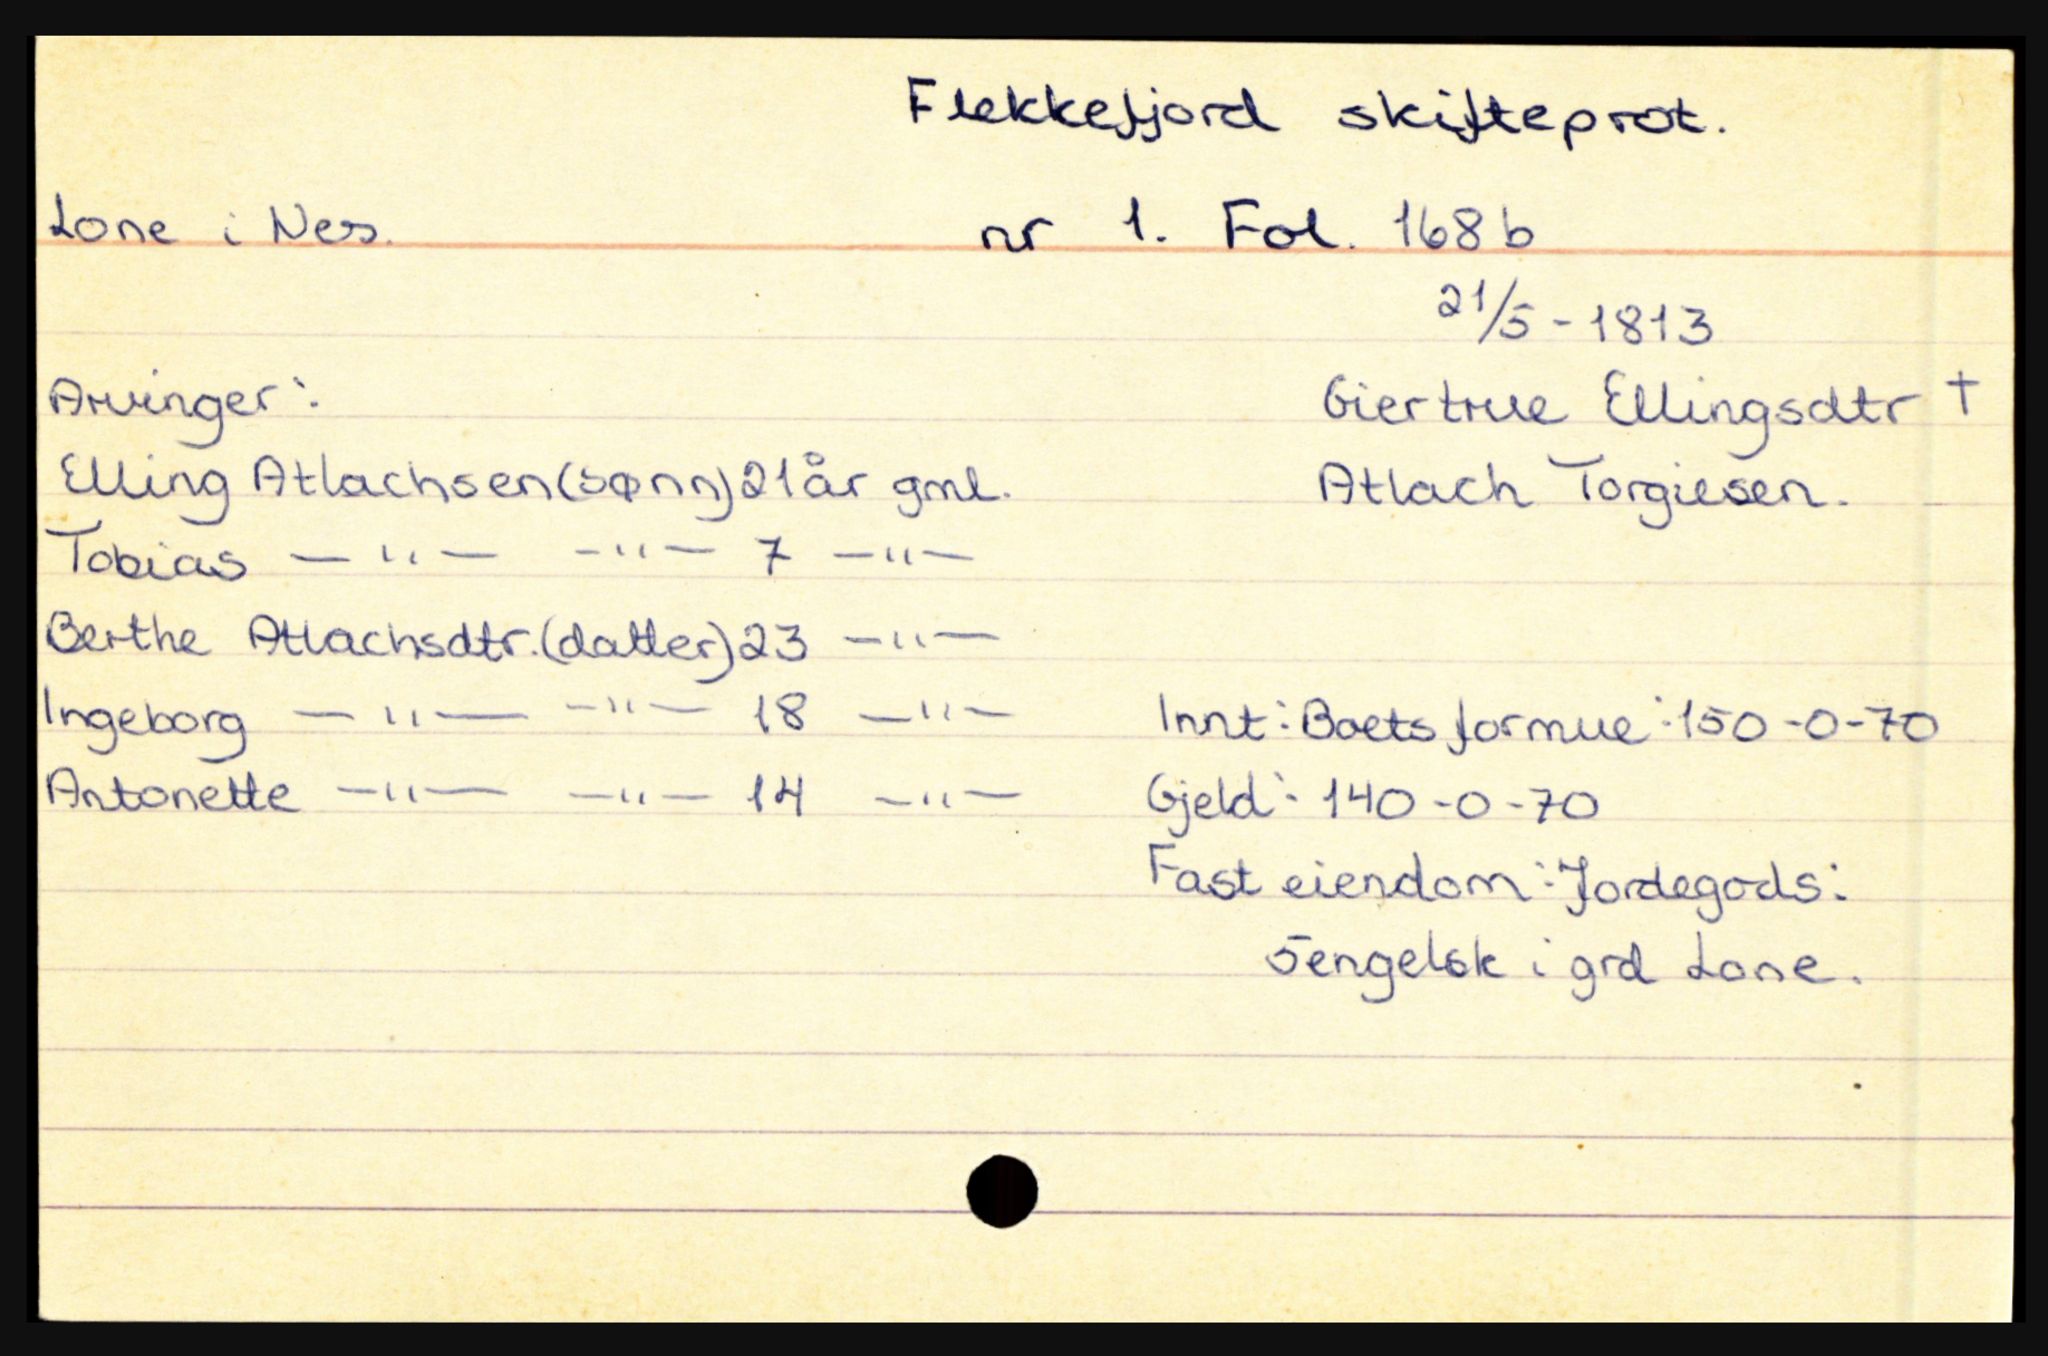 Flekkefjord skifteprot.
Lone i Nes. nr 1. Fol. 168 b
21/5 - 1813
Arvinger: Giertrue Ellingsdtr †
Elling Atlachsen (sønn) 21 år gml. Atlach Torgiesen.
Tobias — " — — " — 7 — " —
Berthe Atlachsdtr. (datter) 23 — " —
Ingeborg — " — — " — 18 — " — Innt: Boets formue: 150 - 0 - 70
Antonette — " — — " — 14 — " — Gjeld: 140 - 0 - 70
Fast eiendom: Jordegods:
5 engelsk i grd Lone.